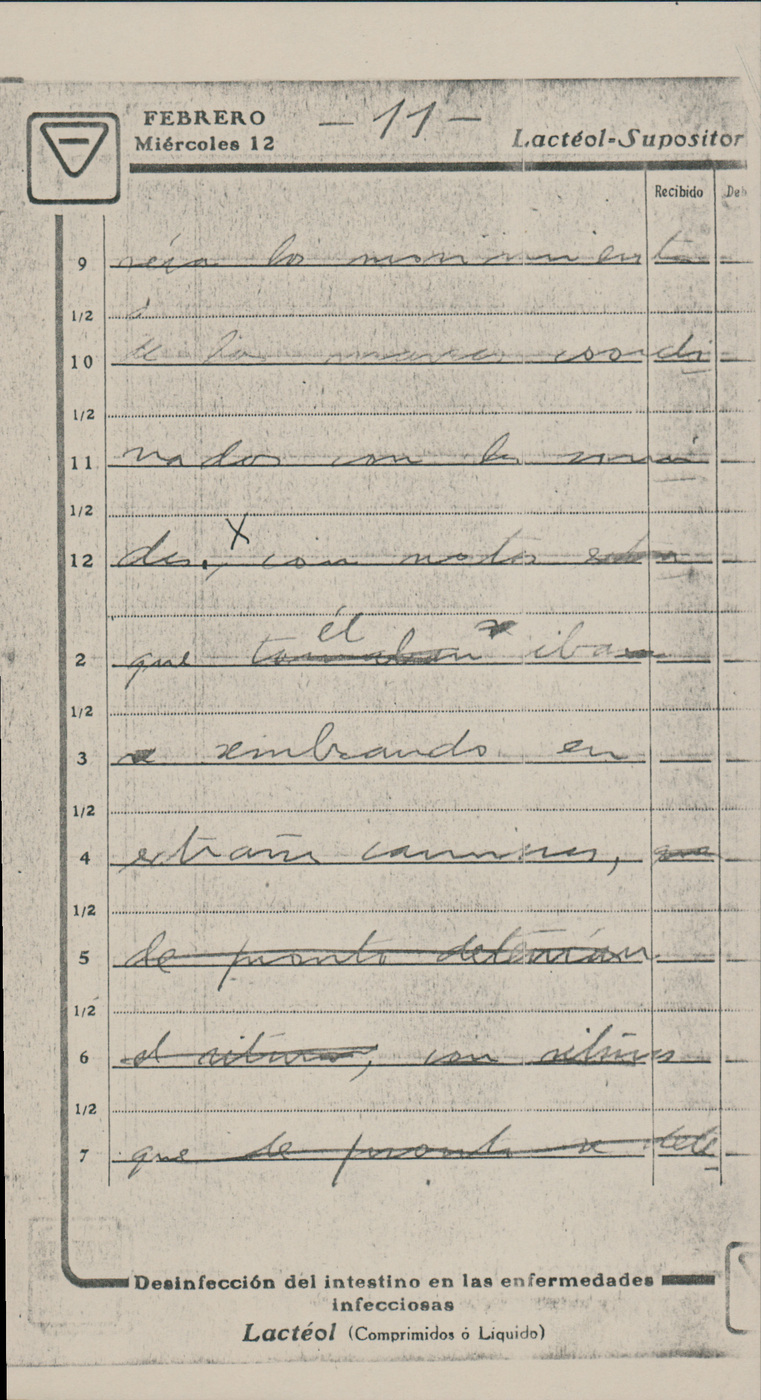 FEBRERO
Miércoles 12
— 11 —
Lactéol-Supositor
Recibido
Deb
9 veía los movimient
1/2
10 de las manos coordi
1/2
11 nados con los soni
1/2
12 dos, X con notas
él
2 que tomaban iban
1/2
3 sembrando en
1/2
4 extraños caminos, que
1/2
5 de pronto detenían
1/2
6 el ritmo, con ritmos
1/2
7 que de pronto se dete
Desinfección del intestino en las enfermedades
infecciosas
Lactéol (Comprimidos ó Líquido)